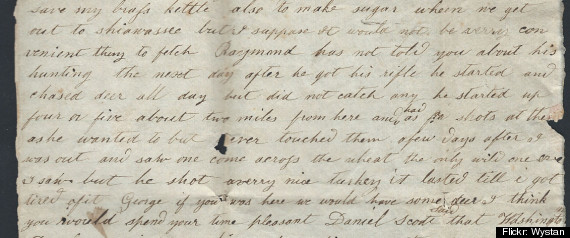 save my brass kettle also to make sugar when we get
out to shiawassee but I suppose it would not be verry con
venient thing to fetch Raymond has not told you about his
hunting the next day after he got his rifle he started and
chased deer all day but did not catch any he started up
four or five about two miles from here and had as shots at them
as he wanted to but never touched them a few days after I
was out and saw one come across the wheat the only wild one
I saw but he shot a verry nice turkey it lasted till i got
tired of it George if you was here we would have some deer I think
you would spend your time pleasant Daniel Scott said that Washington
Flickr: Wystan